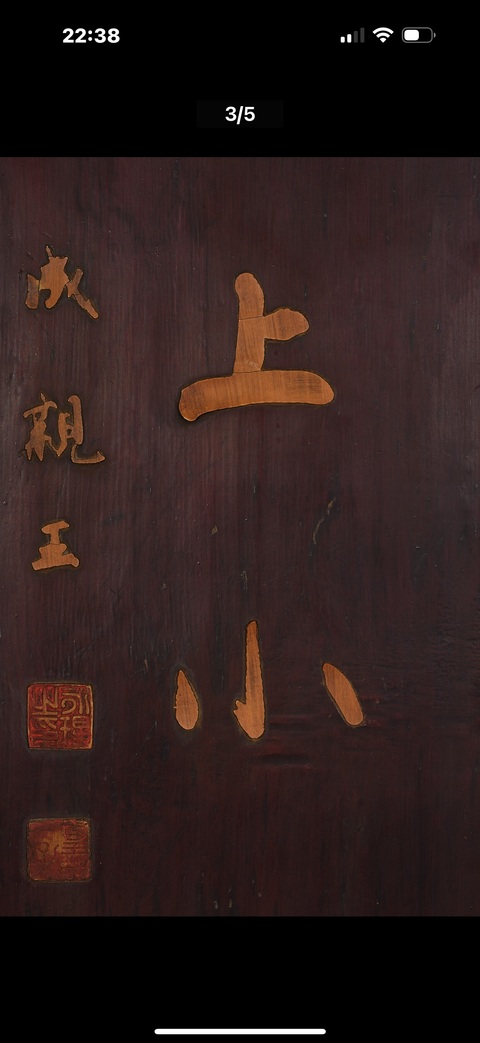 22:38
3/5
上小
成親王